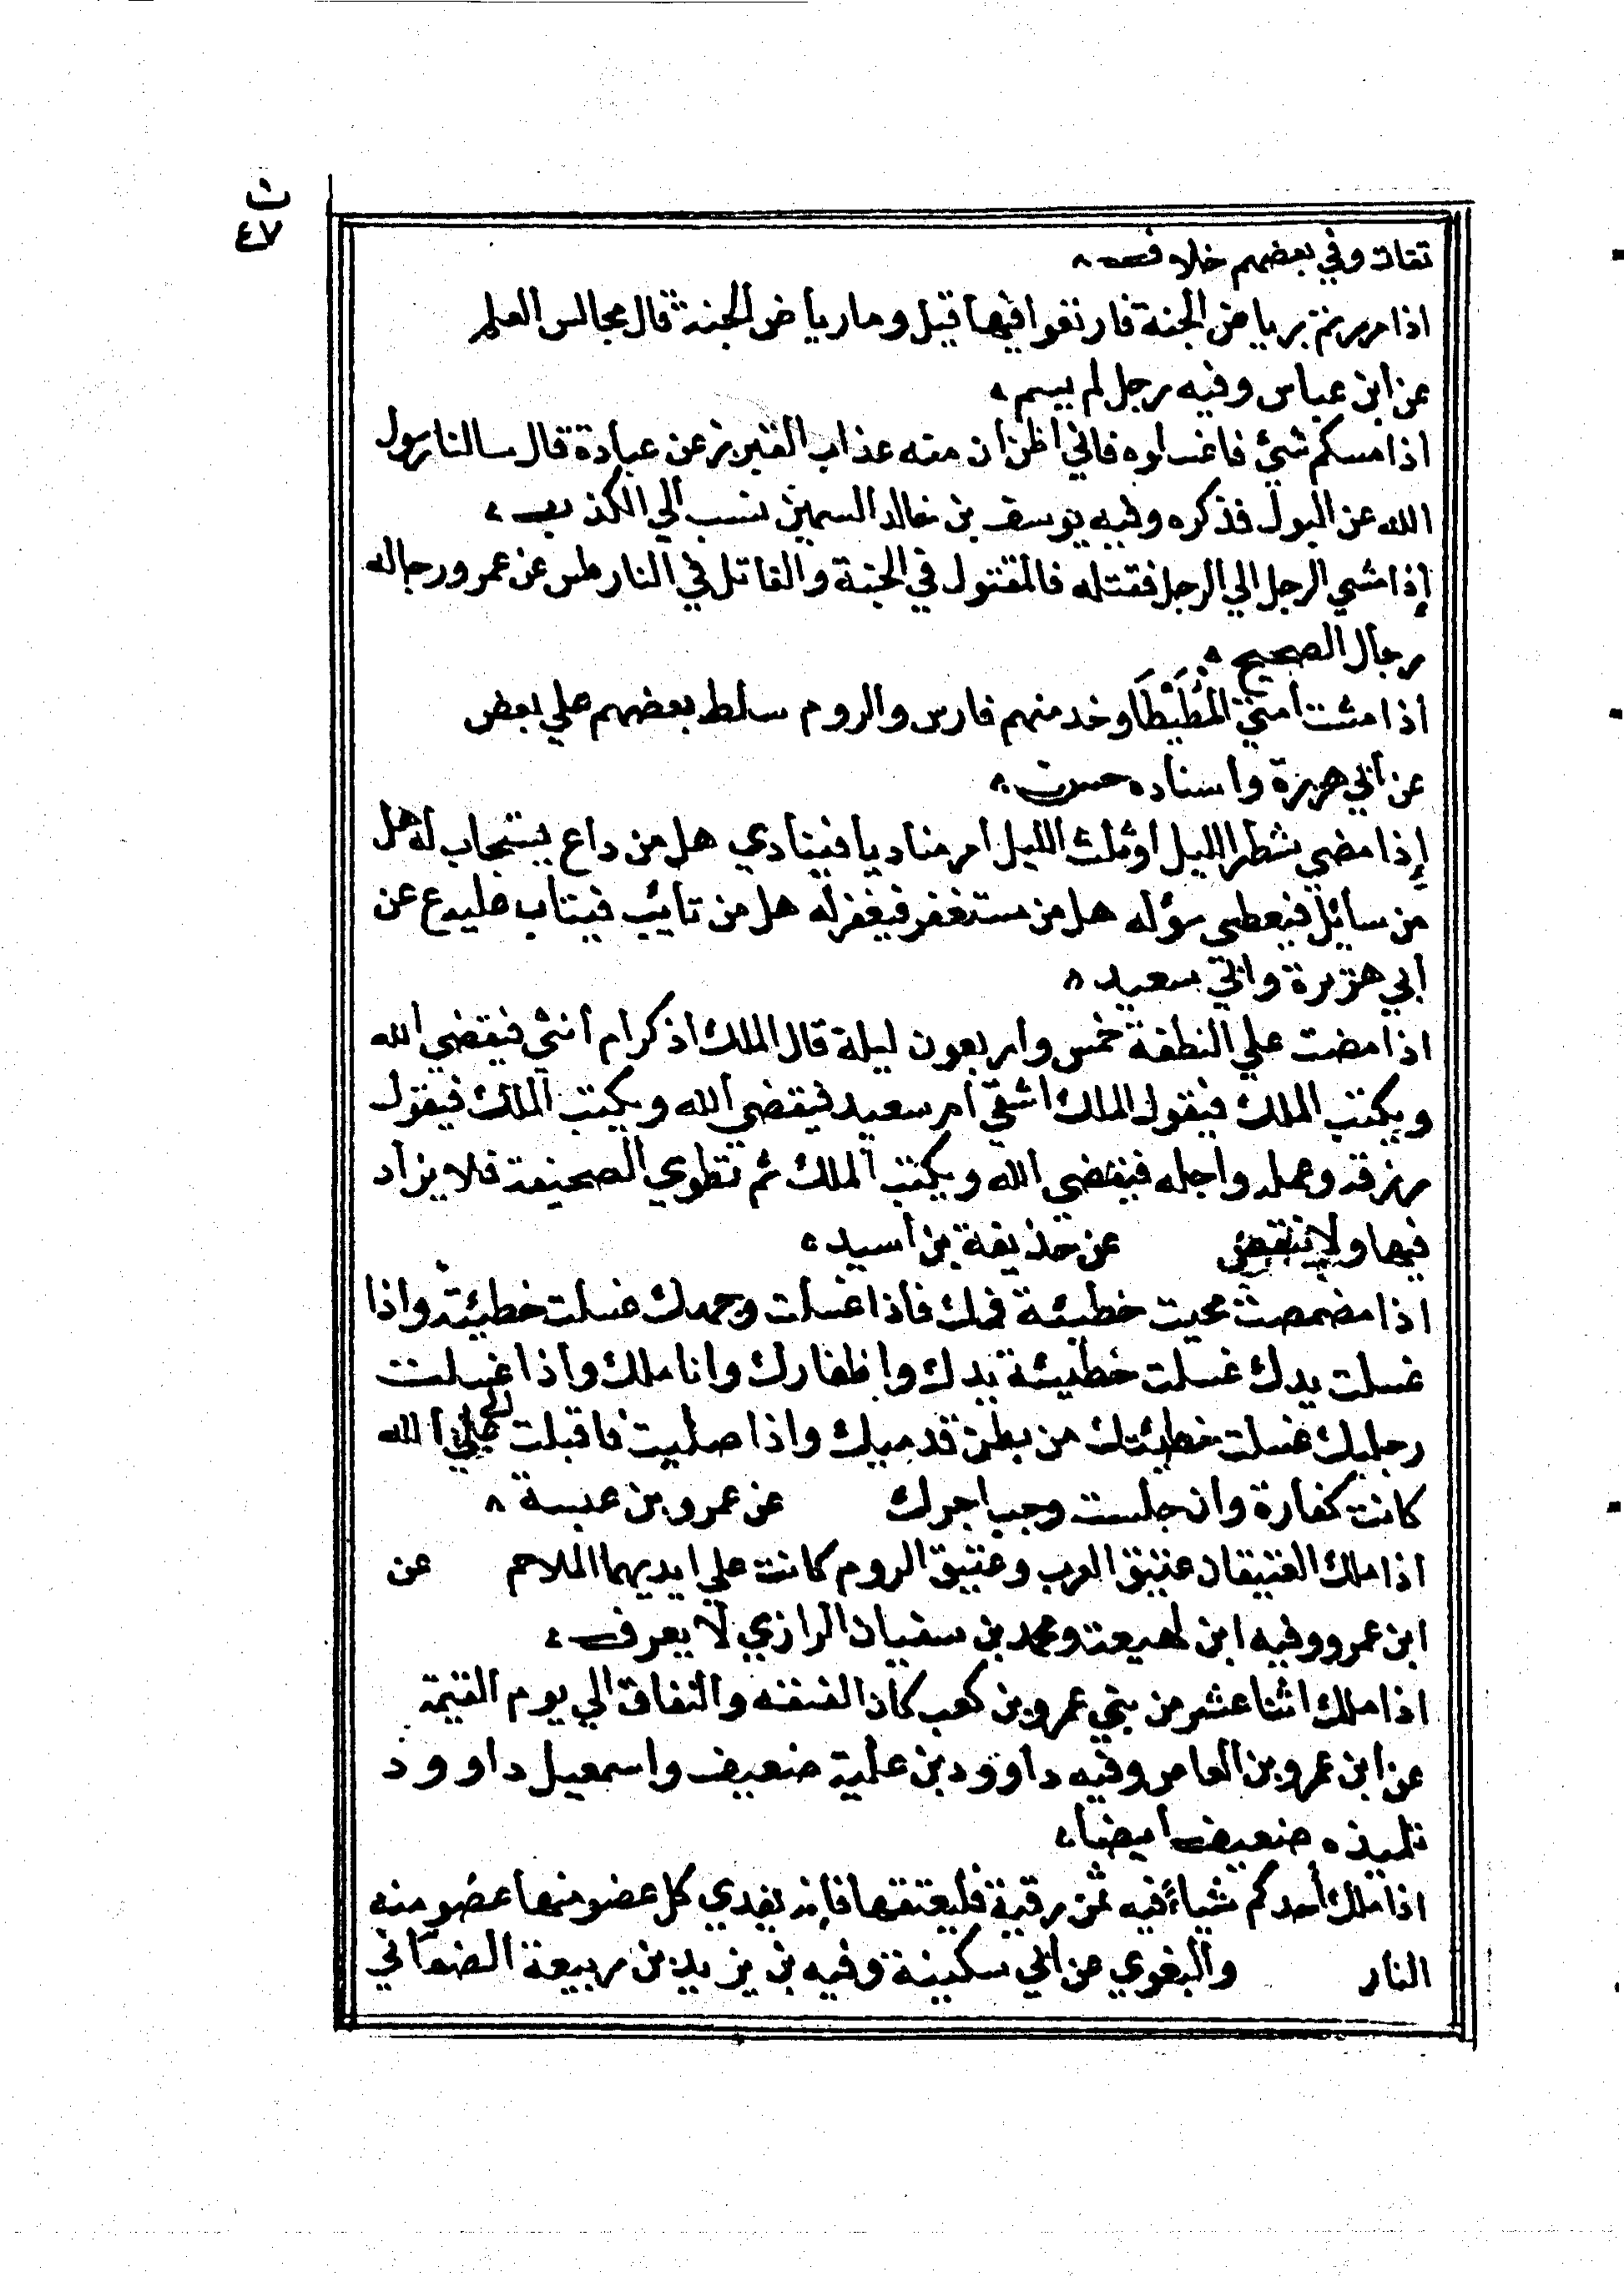 ث
٤٧
ثقات وفي بعضهم خلاف
اذا مررتم برياض الجنة فارتعوا فيها قيل وما رياض الجنة قال مجالس العلم
عن ابن عباس وفيه رجل لم يسم
اذا مسكم شئ فاغسلوه فاني اظن ان منه عذاب القبر بز عن عبادة قال سالنا رسول
الله عن البول فذكره وفيه يوسف بن خالد السمين نسب الي الكذب
إذا مشي الرجل الي الرجل فقتله فالمقتول في الجنة والقاتل في النار طس عن عمر ورجاله
رجال الصحيح
اذا مشت امتي المُطَيْطَا وخدمتهم فارس والروم سلط بعضهم علي بعض
عن ابي هريرة واسناده حسن
إذا مضي شطر الليل او ثلث الليل امر مناديا فينادي هل من داع يستجاب له هل
من سايل فيعطى سؤله هل من مستغفر فيغفر له هل من تائب فيتاب عليه ع عن
ابي هريرة وابي سعيد
اذا مضت علي النطفة خمس واربعون ليلة قال الملك اذكر ام انثي فيقضي الله
ويكتب الملك فيقول الملك اشقي ام سعيد فيقضي الله ويكتب الملك فيقول
رزقه وعمله واجله فيقضي الله ويكتب الملك ثم تطوي الصحيفة فلا يزاد
فيها ولا ينقص عن حذيفة بن اسيد
اذا مضمضت محيت خطيئة فمك فاذا غسلت وجهك غسلت خطيئته واذا
غسلت يدك غسلت خطيئة يدك واظفارك واناملك واذا غسلت
رجليك غسلت خطيئتك من بطن قدميك واذا صليت فاقبلت علي الله
كانت كفارة وان جلست وجب اجرك عن عمرو بن عبسة
اذا ملك العتيقان عتيق العرب وعتيق الروم كانت علي ايديهما الملاحم عن
ابن عمرو وفيه ابن لهيعة ومحمد بن سفيان الرازي لا يعرف
اذا ملك اثنا عشر من بني عمرو بن كعب كان الفتنه والنفاق الي يوم القيمة
عن ابن عمرو بن العاص وفيه داوود بن علية ضعيف واسمعيل داوود
تلميذه ضعيف ايضا
اذا ملك أحدكم شياءً فيه ثمن رقبة فليعتقها فإنه يفدي كل عضو منها عضو منه
النار والبغوي عن ابي سكينة وفيه بن يزيد بن ربيعة الصنعاني